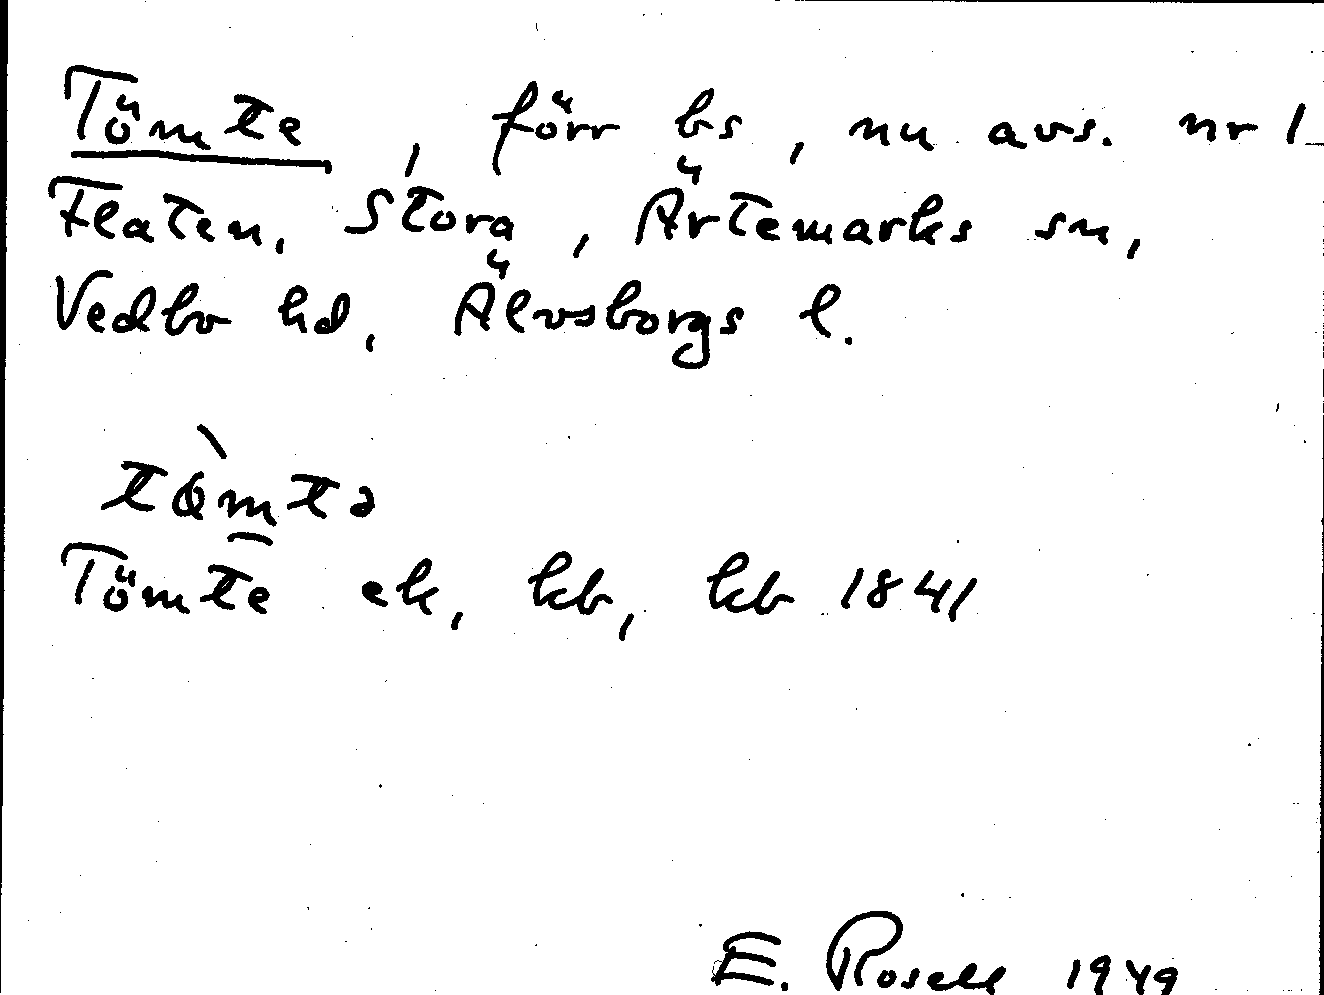 Tömte, förr bs, nu avs. nr 1
Flaten, Stora, Ärtemarks sn,
Vedbo hd, Älvsborgs l.
tø̀mtə
Tömte ek, kb, kb 1841
E. Rosell 1949